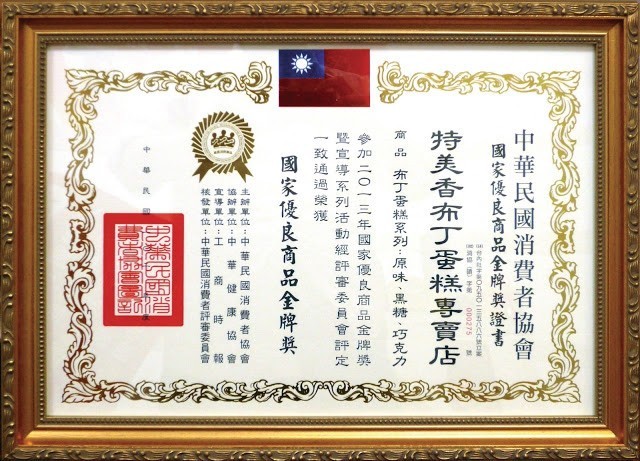 中華民國消費者協會
國家優良商品金牌獎證書
000275 號
特美香布丁蛋糕專賣店
商品 布丁蛋糕系列:原味、黑糖、巧克力
參加二〇一三年國家優良商品金牌獎
暨宣導系列活動經評審委員會評定
一致通過榮獲
國家優良商品金牌獎
主辦單位:中華民國消費者協會
協辦單位:中華健康協會
宣導單位:工商時報
核發單位:中華民國消費者評審委員會
中華民國